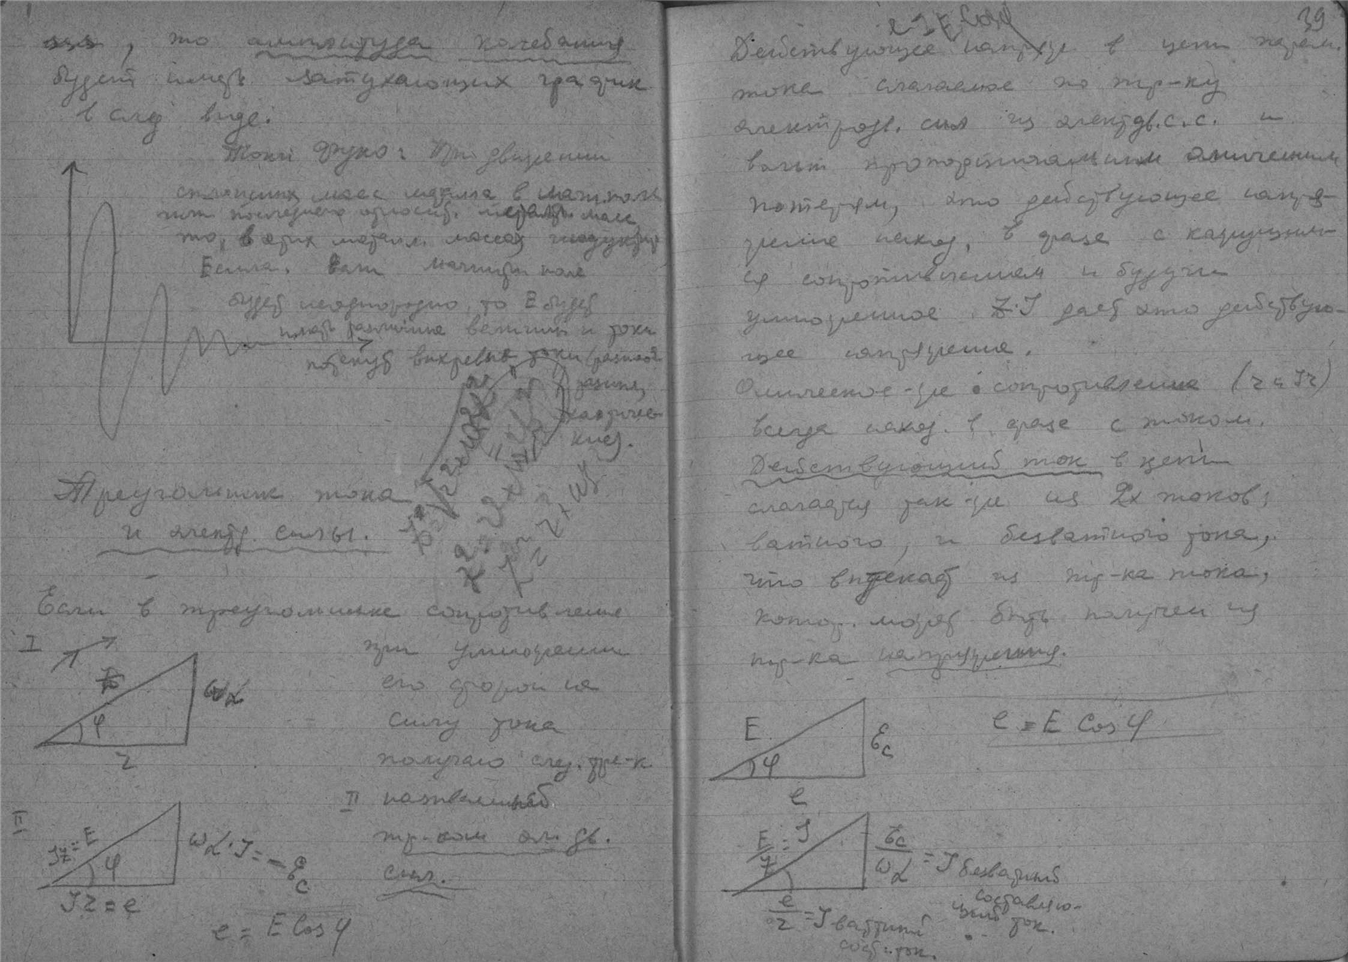 , то амплитуда колебания
будет иметь затухающих график
в след виде.
Токи Фуко: При движении
сплошных масс металла в магн. поле
или последнего относит. металл. масс
то, в этих металл. массах индуктир
E сила. Если магнитн поле
будет неоднородно, то E будет
иметь различные величины и токи
потекут вихревые токи (разной
величин
Треугольник тока
и электр. силы.
Если в треугольнике сопротивление
I
при умножении
его сторон на
силу тока
получаю след. тре-к
φ
ωL
r
II названный
тр-ком эл. дв.
сил.
II
JZ = E
φ
ωL·J = -Ec
Jr = e
e = E Cos φ
39
e J E Cosφ
Действующее напряже в цепи перем.
тока слагаемое по тр-ку
электродв. сил из электдв.с.с. и
вольт пропорциональным омическим
потерям, это действующее напря-
жение наход. в фазе с кажущим-
ся сопротивлением и будучи
умноженное Z·J дает это действую-
щее напряжение.
Омическое-же сопротивление (r и Jr)
всегда наход. в фазе с током.
Действующий ток в цепи
слагается так-же из 2х токов;
ватного, и безватного тока,
что вытекает из тр-ка тока,
котор. может быть получен из
тр-ка напряжения.
E
φ
Ec
e
e = E Cos φ
E/Z = J
Ec/ωL = J безватный
составляю-
щий ток.
e/r = J ваттный
сост. ток.